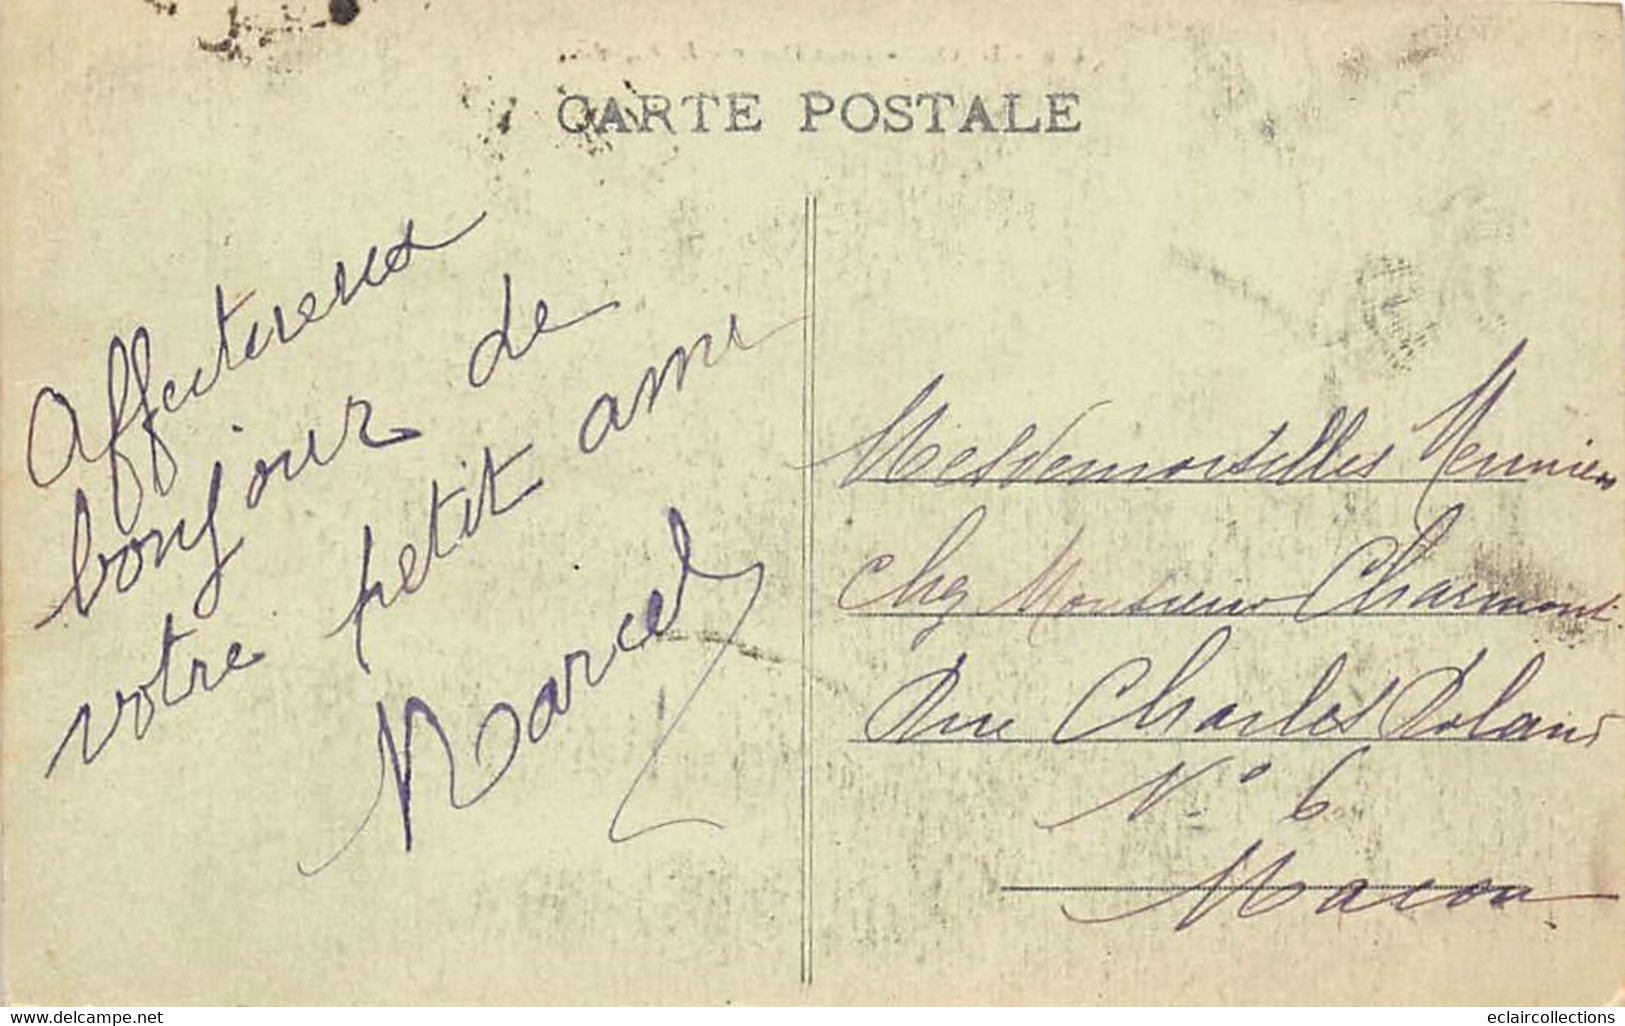 CARTE POSTALE
Affectueux
bonjour de
votre petit ami
Marcel
Mesdemoiselles Meunier
Chez Monsieur Charmont
Rue Charles Rolans
N° 6
Macon
delcampe.net
eclaircollections